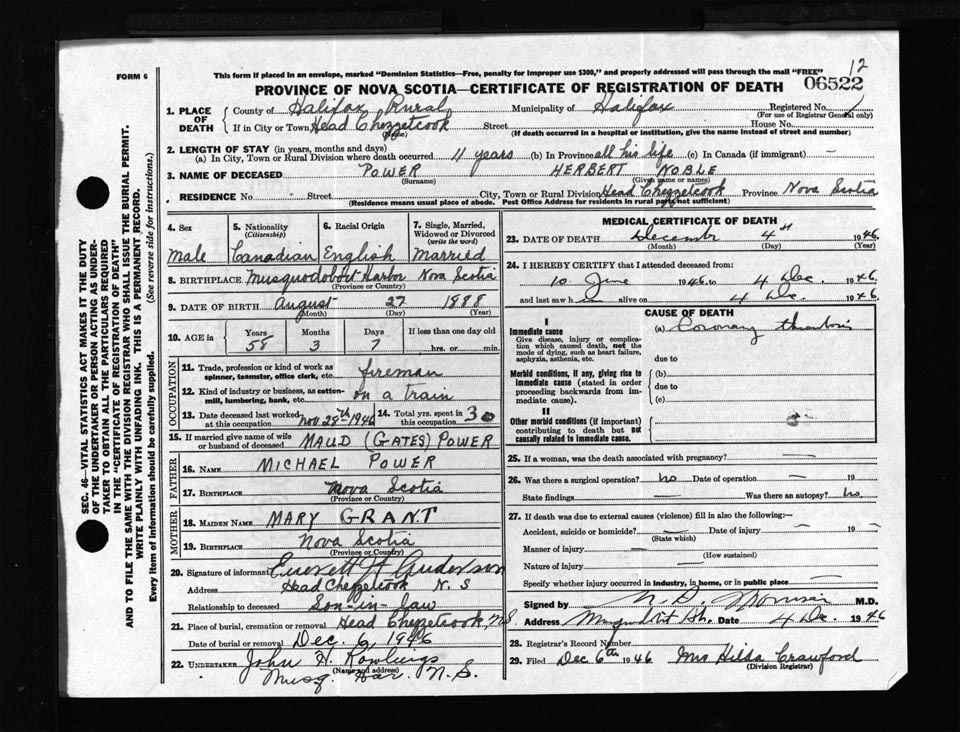 12
FORM 6
This form if placed in an envelope, marked "Dominion Statistics—Free, penalty for improper use $300," and properly addressed will pass through the mail "FREE"
06522
PROVINCE OF NOVA SCOTIA—CERTIFICATE OF REGISTRATION OF DEATH
1. PLACE OF DEATH
County of Halifax Rural Municipality of Halifax Registered No. 1
(For use of Registrar General only)
If in City or Town Head Chezzetcook Street House No.
(Name) (If death occurred in a hospital or institution, give the name instead of street and number)
2. LENGTH OF STAY (in years, months and days)
(a) In City, Town or Rural Division where death occurred 11 years (b) In Province all his life (c) In Canada (if immigrant) —
3. NAME OF DECEASED POWER HERBERT NOBLE
(Surname) (Given name or names)
RESIDENCE No. Street City, Town or Rural Division Head Chezzetcook Province Nova Scotia
(Residence means usual place of abode. Post Office Address for residents in rural parts not sufficient)
4. Sex 5. Nationality (Citizenship) 6. Racial Origin 7. Single, Married, Widowed or Divorced (write the word)
Male Canadian English Married
8. BIRTHPLACE Musquodoboit Harbor Nova Scotia
(Province or Country)
9. DATE OF BIRTH August 27 1888
(Month) (Day) (Year)
10. AGE in Years Months Days If less than one day old
58 3 7 hrs. or min.
OCCUPATION
11. Trade, profession or kind of work as spinner, teamster, office clerk, etc. fireman
12. Kind of industry or business, as cotton-mill, lumbering, bank, etc. on a train
13. Date deceased last worked at this occupation Nov 28th 1946 14. Total yrs. spent in 30
15. If married give name of wife or husband of deceased MAUD (GATES) POWER
FATHER
16. NAME MICHAEL POWER
17. BIRTHPLACE Nova Scotia
(Province or Country)
MOTHER
18. MAIDEN NAME MARY GRANT
19. BIRTHPLACE Nova Scotia
(Province or Country)
20. Signature of informant Everett H Anderson
Address Head Chezzetcook N. S
Relationship to deceased Son-in-law
21. Place of burial, cremation or removal Head Chezzetcook, N S
Date of burial or removal Dec. 6, 1946
22. UNDERTAKER John H. Rowlings
(Name and address)
Musq. Har. N. S.
MEDICAL CERTIFICATE OF DEATH
23. DATE OF DEATH December 4th 1946
(Month) (Day) (Year)
24. I HEREBY CERTIFY that I attended deceased from:
10 June 1946 to 4 Dec. 1946
and last saw h alive on 4 Dec. 1946
CAUSE OF DEATH
I
Immediate cause
Give disease, injury or complication which caused death, not the mode of dying, such as heart failure, asphyxia, asthenia, etc.
(a) Coronary thrombosis
due to
Morbid conditions, if any, giving rise to immediate cause (stated in order proceeding backwards from immediate cause).
(b)
due to
(c)
II
Other morbid conditions (if important) contributing to death but not causally related to immediate cause.
25. If a woman, was the death associated with pregnancy? —
26. Was there a surgical operation? no Date of operation — 19
State findings — Was there an autopsy? no
27. If death was due to external causes (violence) fill in also the following:—
Accident, suicide or homicide? — Date of injury — 19 —
(State which)
Manner of injury —
(How sustained)
Nature of injury —
Specify whether injury occurred in industry, in home, or in public place —
Signed by M.D.
Address Date 4 Dec. 1946
28. Registrar's Record Number
29. Filed Dec 6th 1946 Mrs Hilda Crawford
(Division Registrar)
SEC. 46—VITAL STATISTICS ACT MAKES IT THE DUTY
OF THE UNDERTAKER OR PERSON ACTING AS UNDER-
TAKER TO OBTAIN ALL THE PARTICULARS REQUIRED
IN THE "CERTIFICATE OF REGISTRATION OF DEATH"
AND TO FILE THE SAME WITH THE DIVISION REGISTRAR WHO SHALL ISSUE THE BURIAL PERMIT.
WRITE PLAINLY WITH UNFADING INK. THIS IS A PERMANENT RECORD.
Every item of information should be carefully supplied. (See reverse side for instructions.)